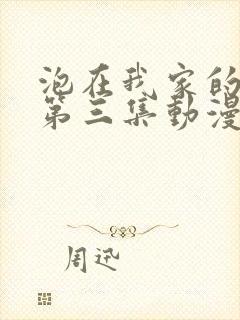 泡在我家的
第三集動漫
周迅